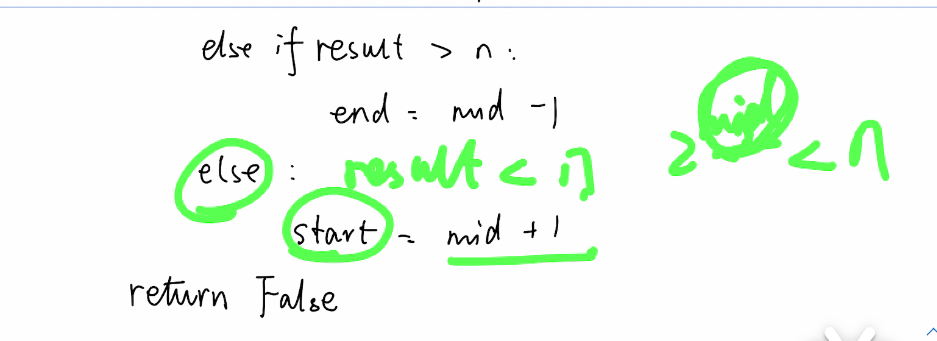 else if result > n :
end = mid -1
else : result < n
2^mid < n
start = mid + 1
return False